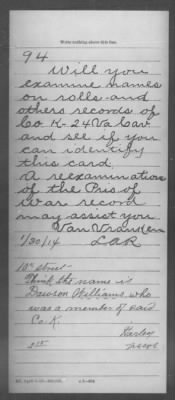 Write nothing above this line.
94
Will you
examine names
on rolls and
others records of
Co K-24 Va Cav
and see if you
can identify
this card.
A reexamination
of the Pris of
War record
may assist you
Van Vranken
1/30/14 LAR
10th street-
Think the name is
Dawson Williams who
was a member of said
Co. K.
Harley